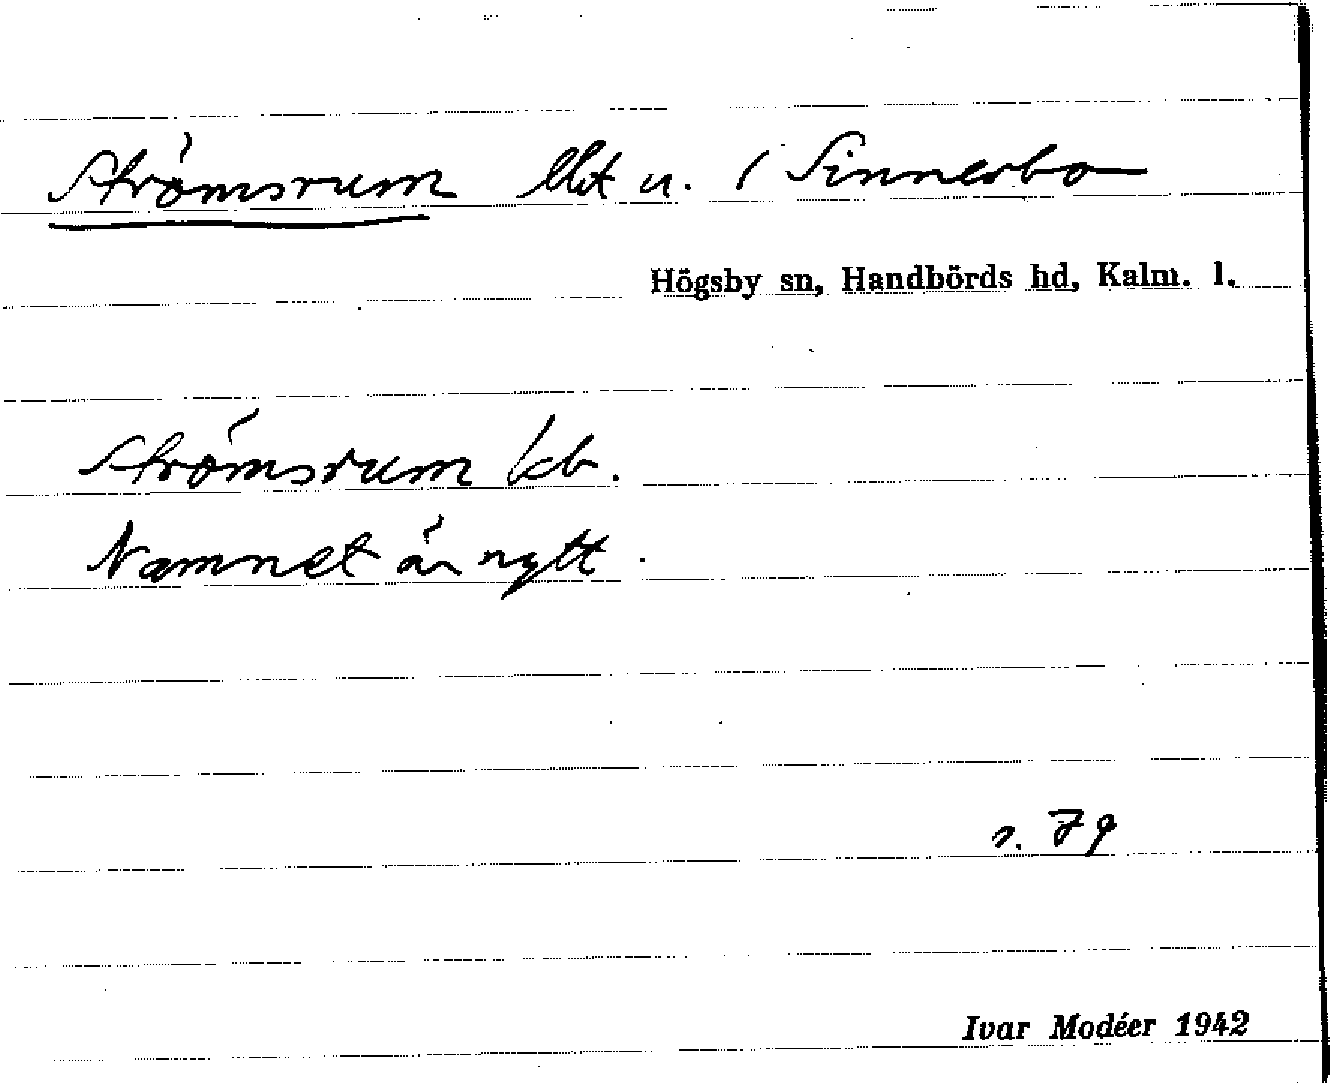 Strömsrum lht u. / Sinnerbo
Högsby sn, Handbörds hd, Kalm. l.
Strömsrum kb.
Namnet är nytt.
s. 79
Ivar Modéer 1942